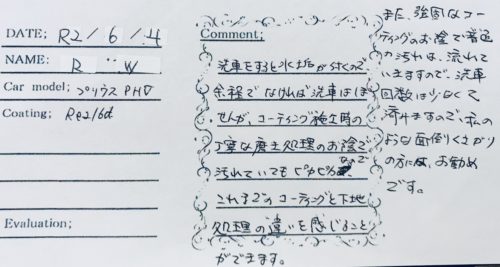 DATE; R2/6/4
NAME; R W
Car model; プリウスPHV
Coating; Re216d
Evaluation;
Comment;
洗車をすると水垢が付くので
余程でなければ洗車はしま
せんが、コーティング施工時の
丁寧な廃土処理のお陰で
汚れていてもピカピカなので
これまでのコーティングと下地
処理の違いを感じること
ができます。
また、強固なコー
ティングのお陰で普通
の汚れは、流れて
いきますので、洗車
回数は少なくて
済けますので、私の
ような面倒くさがり
の方には、お勧め
です。